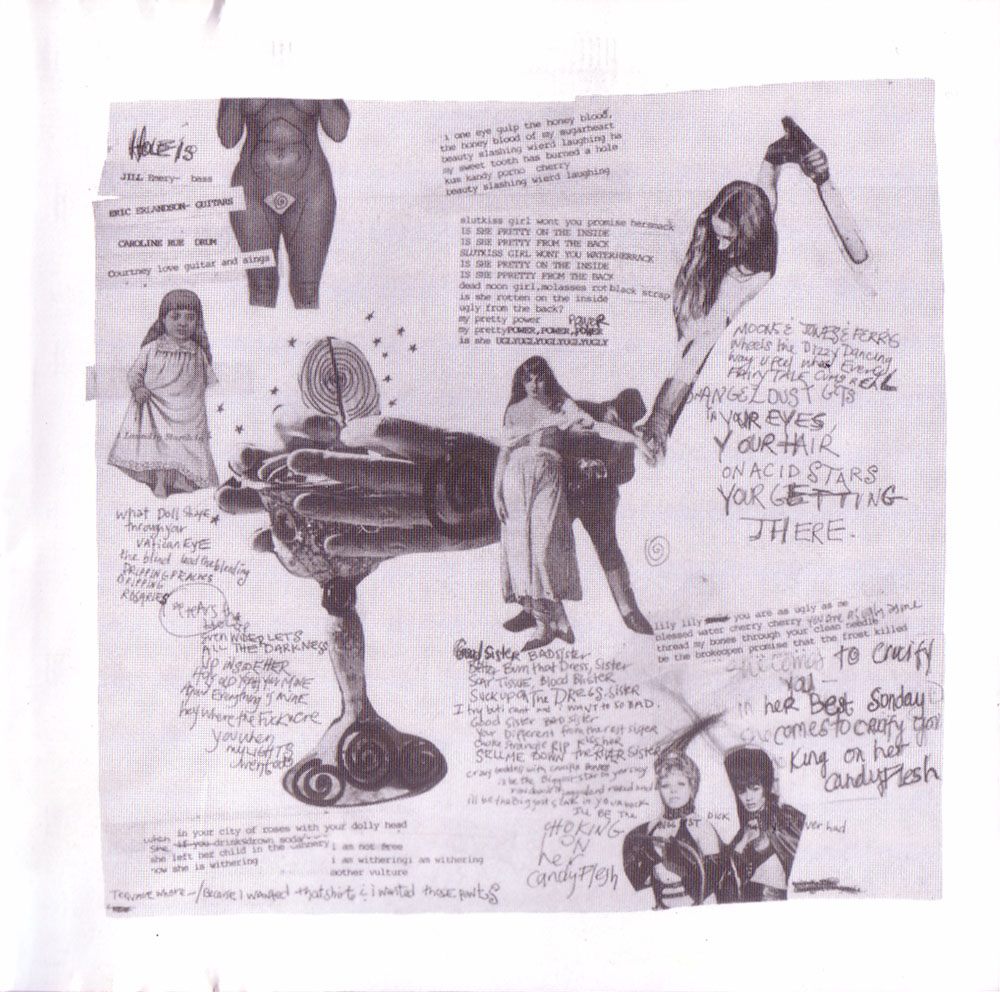 HOLE is
JILL Emery- bass
ERIC ERLANDSON- GUITARS
CAROLINE RUE DRUM
Courtney love guitar and sings
i one eye gulp the honey blood,
the honey blood of my sugarheart
beauty slashing wierd laughing ha
my sweet tooth has burned a hole
kum kandy porno cherry
beauty slashing wierd laughing
slutkiss girl wont you promise hersmack
IS SHE PRETTY ON THE INSIDE
IS SHE PRETTY FROM THE BACK
SLUTKISS GIRL WONT YOU WATERHERRACK
IS SHE PRETTY ON THE INSIDE
IS SHE PPRETTY FROM THE BACK
dead moon girl,molasses rotblack strap
is she rotten on the inside
ugly from the back?
my pretty power POWER
my prettyPOWER,POWER,POWER
is she UGLYUGLYUGLYUGLYUGLY
MOONS & JUNES & FERRIS
Wheels the Dizzy Dancing
Way U feel when Every
FAIRY TALK Comes REAL
ANGEL DUST GETS
IN YOUR EYES,
YOUR HAIR
ON ACID STARS
YOUR GETTING
THERE.
What Doll Shape
through your
VATICAN EYE
the blind lead the bleeding
DRIPPING PEACHES
DRIPPING
ROSARIES
tears the
EVEN WIDER LETS
ALL THE DARKNESS
UP INSIDE HER
And Everything is MINE
hey where the FUCK were
you when
my LIGHTS
went out
Good Sister BAD Sister
Better Burn that Dress, Sister
SCAR TISSUE, Blood Blister
Suck upon THE DREGS, SISTER
I try but i cant and i WANT to SO BAD.
Good Sister BAD Sister
Your Different from the rest sister
SELL ME DOWN THE RIVER SISTER
i'll be the Biggest
I'll BE The
CHOKING
ON
her
Candy Flesh
lily lily you are as ugly as me
blessed water cherry cherry you are as ugly as me
thread my bones through your clean needle
be the brokeopen promise that the frost killed
she comes to crucify
you —
in her Best Sunday
she comes to crucify you
King on her
candyFlesh
DICK
ever had
in your city of roses with your dolly head
when she if you drinkdrown soda
she left her child in the cannery
now she is withering
i am not free
i am witheringi am withering
mother vulture
Teenage whore—/Because I wanted that shirt & i wanted those pants